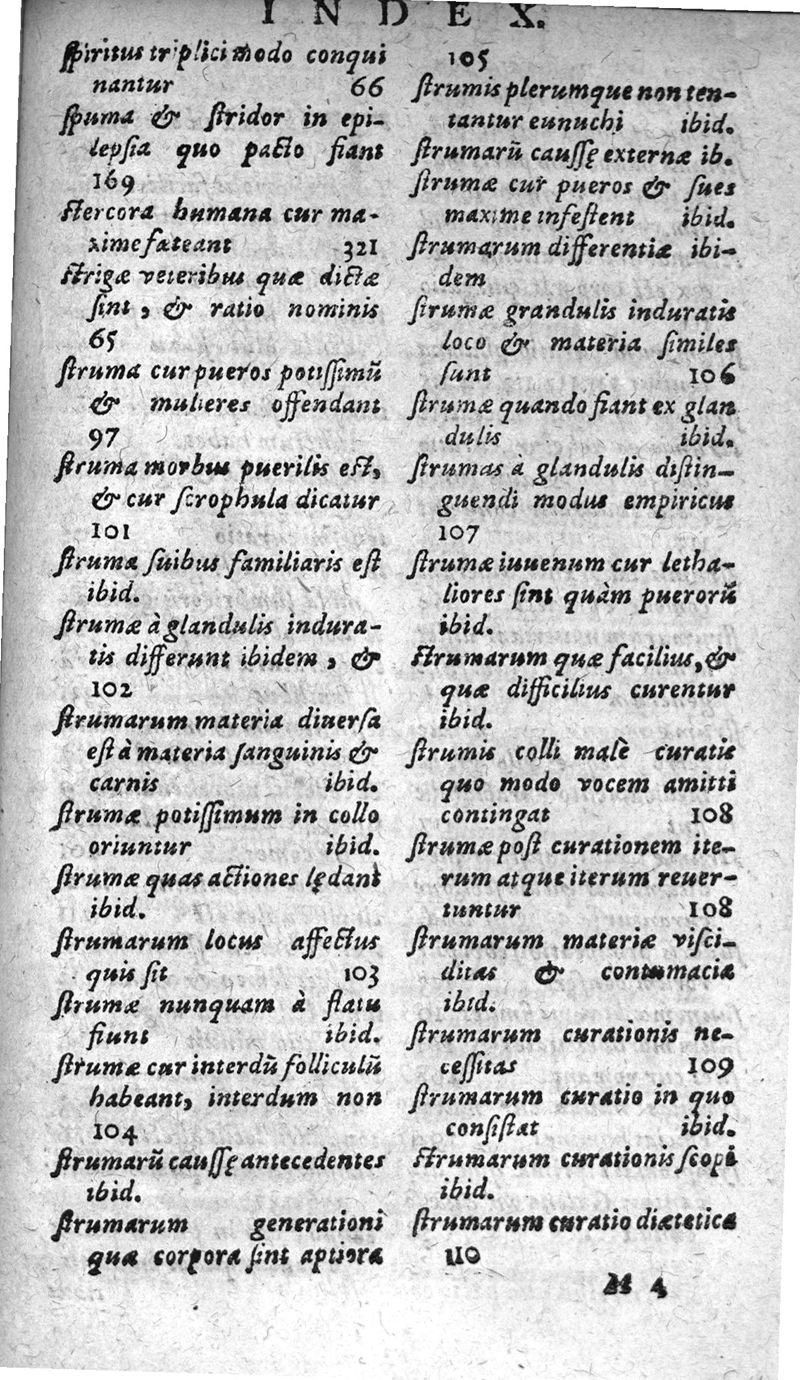 INDEX.
ſpiritus triplici modo conqui
nantur 66
ſpuma & ſtridor in epi-
lepſia quo pacto fiant
169
ſtercora humana cur ma-
xime fæteant 321
ſtrigæ veteribus quæ dictæ
ſint, & ratio nominis
65
ſtruma cur pueros potiſſimũ
& mulieres offendant
97
ſtruma morbus puerilis eſt,
& cur ſcrophula dicatur
101
ſtruma ſuibus familiaris eſt
ibid.
ſtrumæ à glandulis indura-
tis differunt ibidem, &
102
ſtrumarum materia diuerſa
eſt à materia ſanguinis &
carnis ibid.
ſtrumæ potiſſimum in collo
oriuntur ibid.
ſtrumæ quas actiones lędant
ibid.
ſtrumarum locus affectus
quis ſit 103
ſtrumæ nunquam à flatu
fiunt ibid.
ſtrumæ cur interdũ folliculũ
habeant, interdum non
104
ſtrumarũ cauſſę antecedentes
ibid.
ſtrumarum generationi
quæ corpora ſint aptiora
105
ſtrumis plerumque non ten-
tantur eunuchi ibid.
ſtrumarũ cauſſę externæ ib.
ſtrumæ cur pueros & ſues
maxime infeſtent ibid.
ſtrumarum differentiæ ibi-
dem
ſtrumæ grandulis induratis
loco & materia ſimiles
ſunt 106
ſtrumæ quando fiant ex glan
dulis ibid.
ſtrumas à glandulis diſtin-
guendi modus empiricus
107
ſtrumæ iuuenum cur letha-
liores ſint quàm puerorũ
ibid.
ſtrumarum quæ facilius, &
quæ difficilius curentur
ibid.
ſtrumis colli male curatis
quo modo vocem amitti
contingat 108
ſtrumæ poſt curationem ite-
rum atque iterum reuer-
tuntur 108
ſtrumarum materiæ viſci-
ditas & contumacia
ibid.
ſtrumarum curationis ne-
ceſſitas 109
ſtrumarum curatio in quo
conſiſtat ibid.
ſtrumarum curationis ſcopi
ibid.
ſtrumarum curatio diætetica
110
M 4